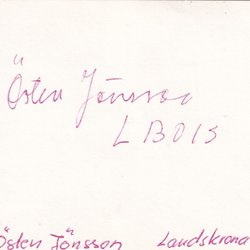 Östen Jönsson
L BOIS
Östen Jönsson Landskrona